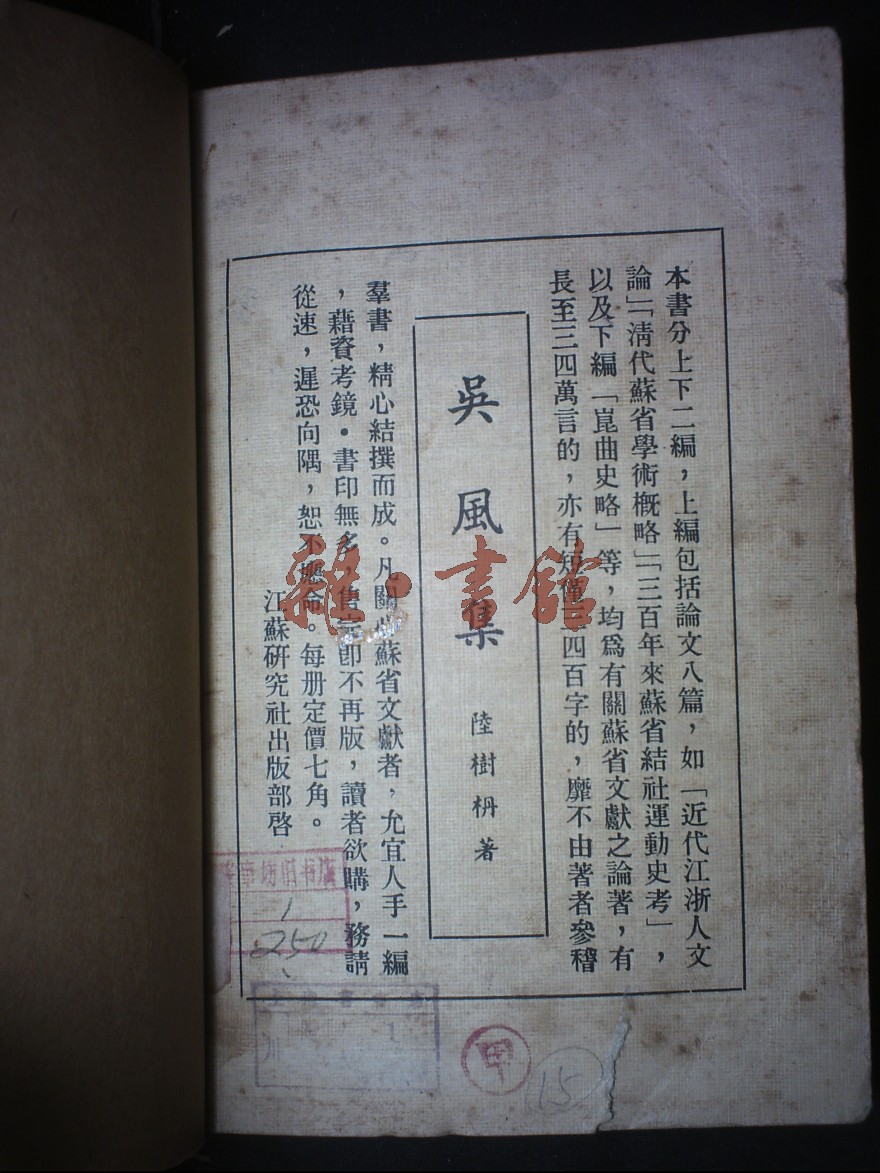 本書分上下二編，上編包括論文八篇，如「近代江浙人文
論」「淸代蘇省學術槪略」「三百年來蘇省結社運動史考」，
以及下編「崑曲史略」等，均爲有關蘇省文獻之論著，有
長至三四萬言的，亦有短僅三四百字的，靡不由著者參稽
吳風集
陸樹枬著
羣書，精心結撰而成。凡關於蘇省文獻者，允宜人手一編
，藉資考鏡。書印無多，售完卽不再版，讀者欲購，務請
從速，遲恐向隅，恕不應命。每册定價七角。
江蘇硏究社出版部啓
雜·書館
旧书店
1
250
甲
115